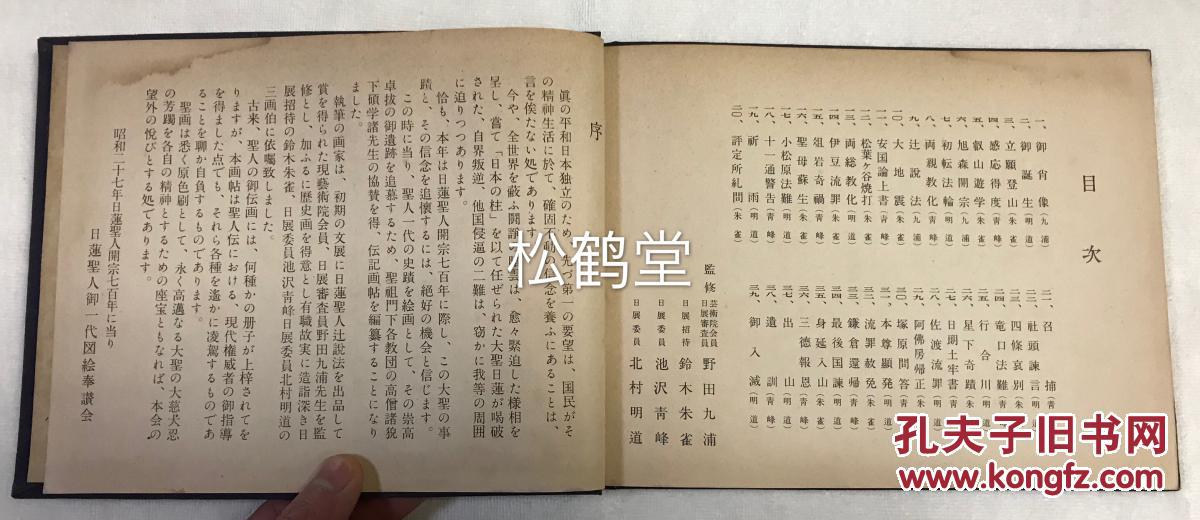 目次
一、御肖像(九浦)
二、御誕生(明道)
三、立願登山(朱雀)
四、感応得度(青峰)
五、叡山遊学(朱雀)
六、旭森開宗(九浦)
七、初転法輪(明道)
八、両親教化(青峰)
九、辻説法(九浦)
一〇、大地震(朱雀)
一一、安国論上書(青峰)
一二、松葉ヶ谷焼打(朱雀)
一三、両総教化(明道)
一四、伊豆流罪(朱雀)
一五、祖岩奇禍(青峰)
一六、聖母蘇生(朱雀)
一七、小松原法難(明道)
一八、十一通警告(青峰)
一九、祈雨(明道)
二〇、評定所糺問(朱雀)
二一、召捕(青
二二、社頭諫言(明
二三、四條哀別(
二四、竜口法難(
二五、行合川(明
二六、星下奇蹟(朱
二七、日朗土牢書(青
二八、佐渡流罪(明
二九、阿佛房帰正(朱
三〇、塚原問答(青
三一、本尊顕発(明道)
三二、流罪赦免(朱雀)
三三、鎌倉還帰(青峰)
三四、最後国諫(明道)
三五、身延入山(朱雀)
三六、三徳報恩(青峰)
三七、出山(明道)
三八、遺訓(青峰)
三九、御入滅(明道)
監修 芸術院会員 日展審査員 野田九浦
日展招待 鈴木朱雀
日展委員 池沢青峰
日展委員 北村明道
序
眞の平和日本独立のため、先づ第一の要望は、国民がそ
の精神生活に於て、確固不動の 念を養ふにあることは、
言を俟たない処であります。
今や、全世界を蔽ふ闘諍 雲は、愈々緊迫した様相を
呈し、嘗て「日本の柱」を以て任ぜられた大聖日蓮が喝破
された、自界叛逆、他国侵逼の二難は、窃かに我等の周囲
に迫りつつあります。
恰も、本年は日蓮聖人開宗七百年に際し、この大聖の事
蹟と、その信念を追懐するには、絶好の機会と信じます。
この時に当り、聖人一代の史蹟を絵画として、その崇高
卓抜の御遺跡を追慕するため、聖祖門下各教団の高僧諸貌
下碩学諸先生の協賛を得、伝記画帖を編纂することになり
ました。
執筆の画家は、初期の文展に日蓮聖人辻説法を出品して
賞を得られた現藝術院会員、日展審査員野田九浦先生を監
修とし、加ふるに歴史画を得意とし有職故実に造詣深き日
展招待の鈴木朱雀、日展委員池沢青峰日展委員北村明道の
三画伯に依囑致しました。
古来、聖人の御伝画には、何種かの册子が上梓されてを
りますが、本画帖は聖人伝における、現代権威者の御指導
を得ました点でも、それら各種を遙かに凌駕するものであ
ることを聊か自負するものであります。
聖画は悉く原色刷として、永く高邁なる大聖の大慈大忍
の芳躅を各自の精神とするための座宝ともなれば、本会の
望外の悦びとする処であります。
昭和二十七年日蓮聖人開宗七百年に当り
日蓮聖人御一代図絵奉讃会
松鹤堂
孔夫子旧书网
www.kongfz.com